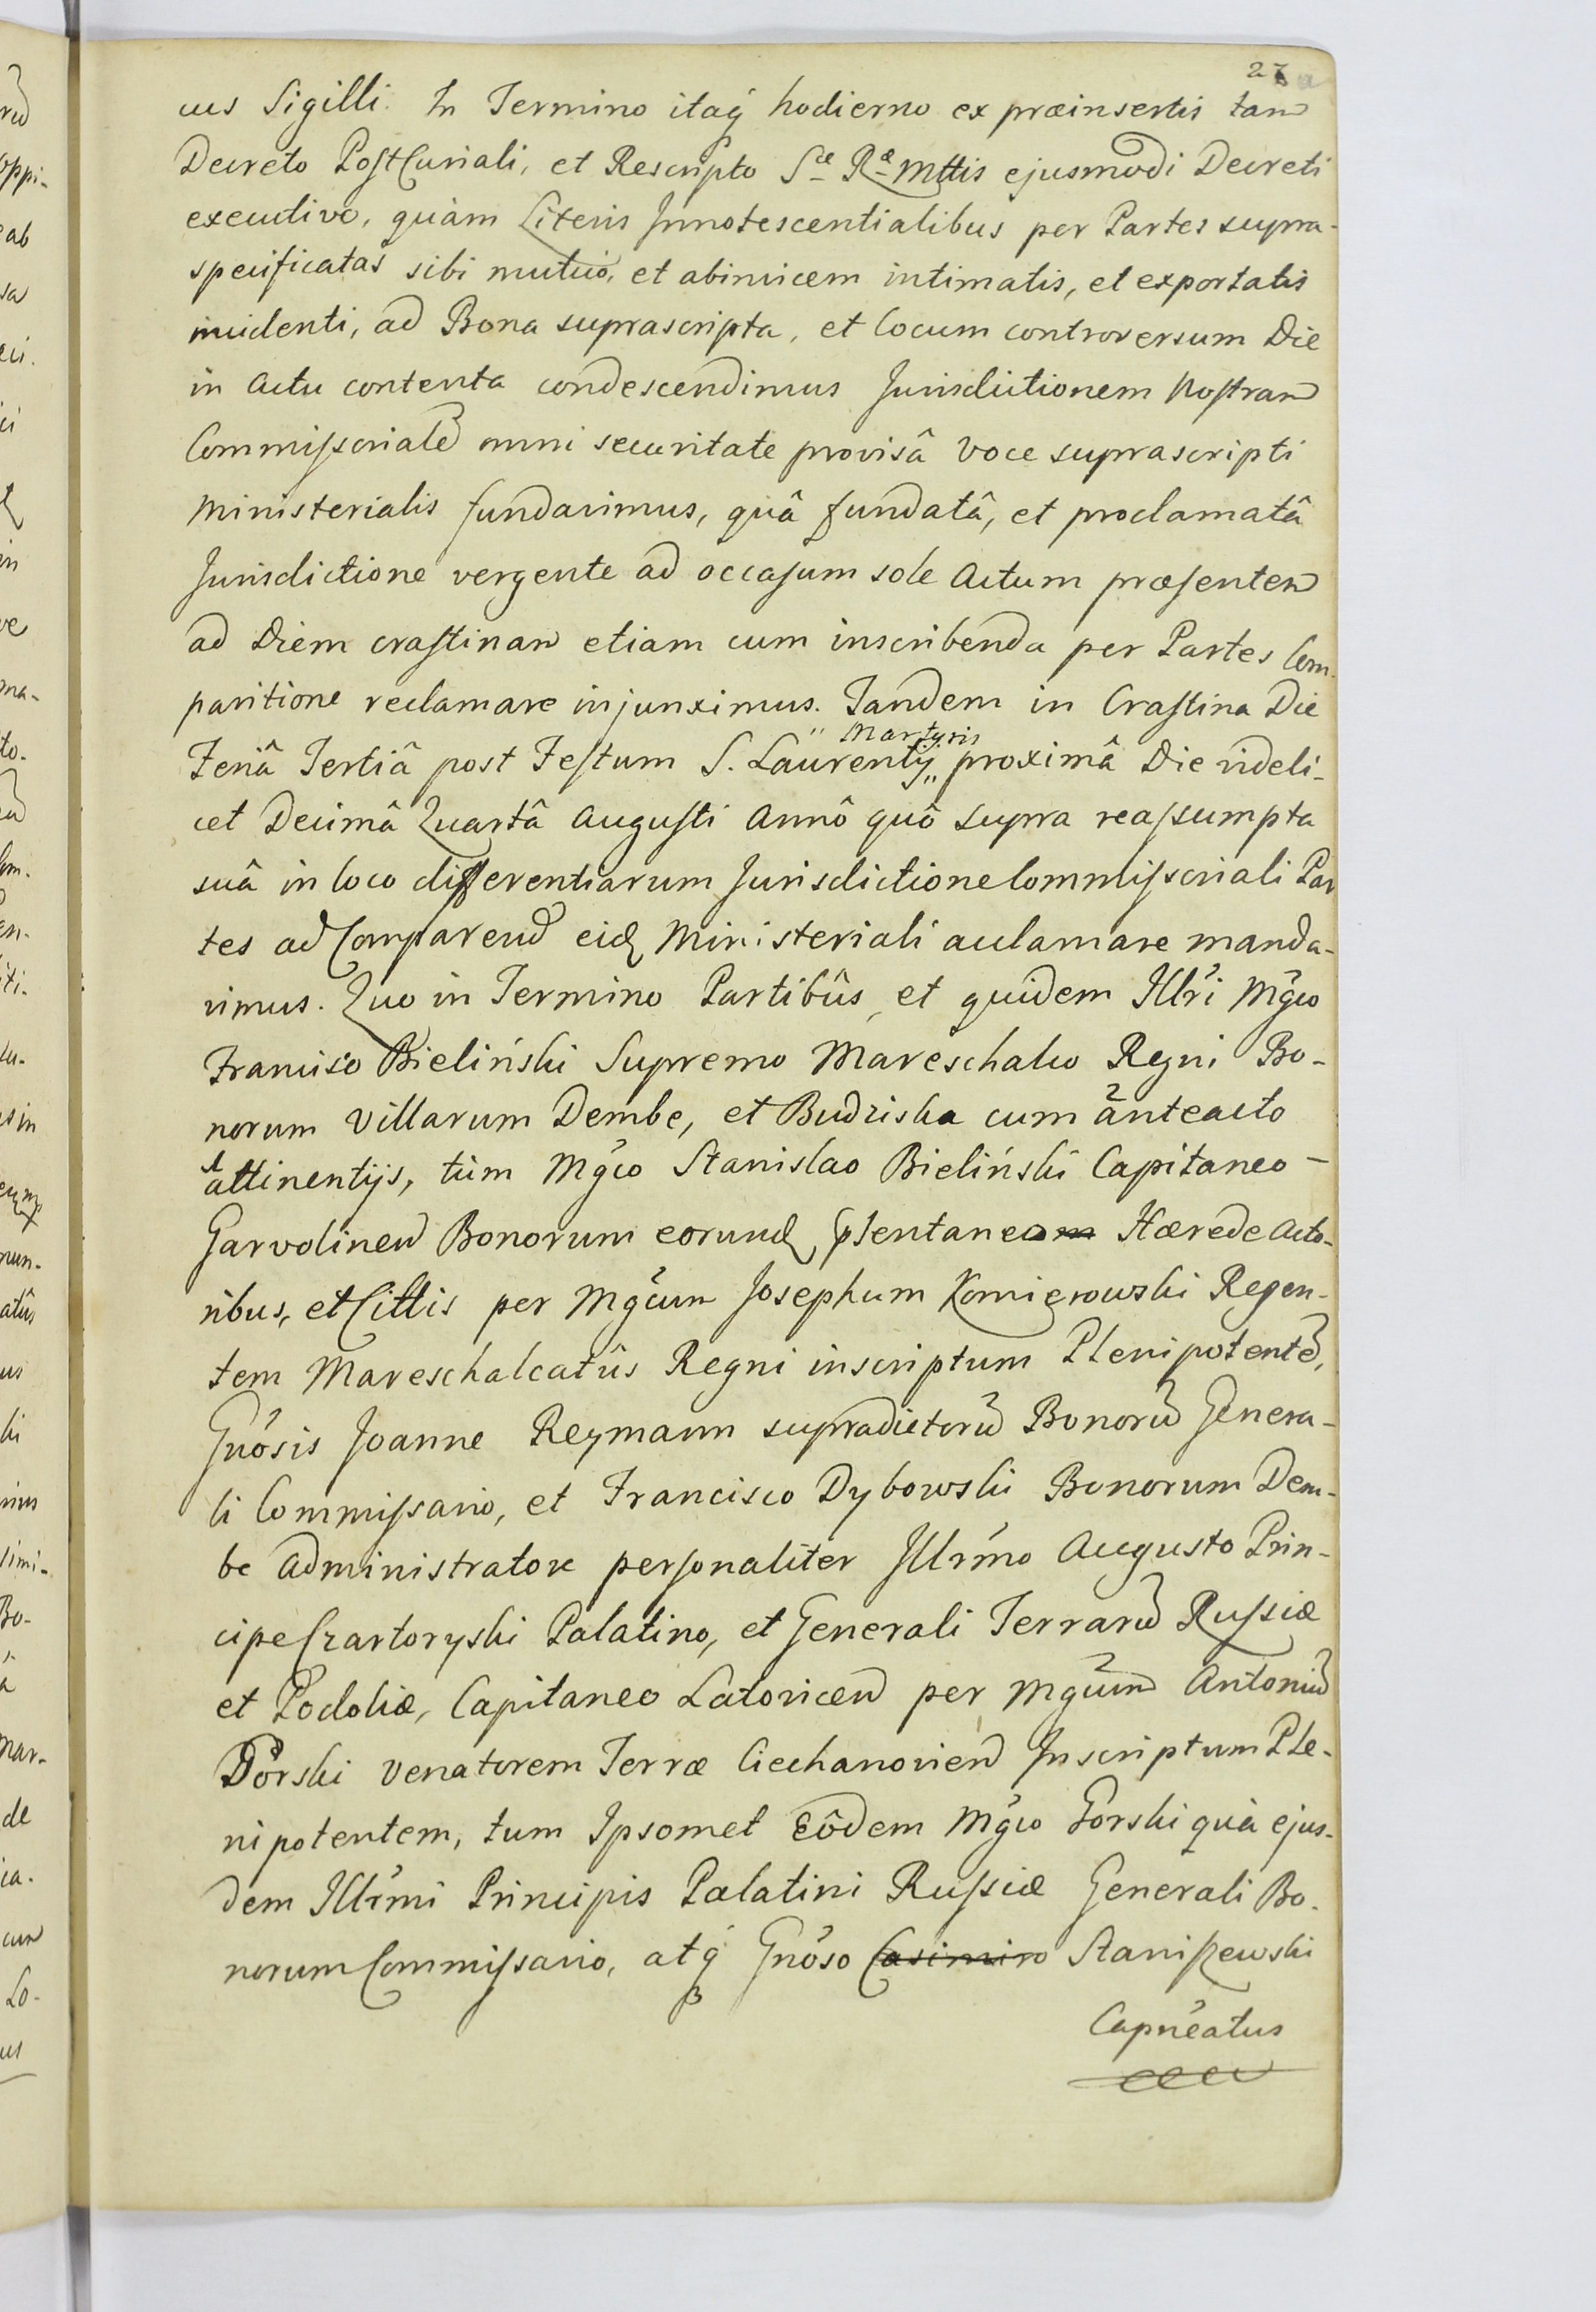 27
cus Sigilli. In Termino itaq́ hodierno ex præinsertis tam
Decreto PostCuriali, et Rescripto Sæ Ræ Mttis ejusmodi Decreti
executivo, quàm Literis Innotescentialibus per Partes supra-
specificatas sibi mutuò, et abinvicem intimatis, et exportatis
incidenti, ad Bona suprascripta, et locum controversum Die
in Actu contenta condescendimus Jurisdictionem Nostram
Commissorialẽ omni securitate provisâ voce suprascripti
Ministerialis fundavimus, quâ fundatâ, et proclamatâ
Jurisdictione vergente ad occasum sole Actum præsentem
ad Diem crastinam etiam cum inscribenda per Partes Com-
paritione reclamare injunximus. Tandem in Crastina Die
Martyris
Feriâ Tertiâ post Festum S. Laurentij proximâ Die videli-
cet Decimâ Quartâ Augusti Annô quô supra reassumpta
suâ in loco differentiarum Jurisdictione Commissoriali Par
tes ad Comparend eid Ministeriali aclamare manda-
vimus. Quo in Termino Partibûs, et quidem Illri Mgco
Francisco Bieliński Supremo Mareschalco Regni Bo-
norum Villarum Dembe, et Budziska cum anteacto
attinentijs, tùm Mgco Stanislao Bieliński Capitaneo -
Garvolinen Bonorum eorund plentaneo Hærede Acto-
ribus, et Cittis per Mgcum Josephum Komierowski Regen-
tem Mareschalcatûs Regni inscriptum Plenipotentẽ,
Gnosis Joanne Reymann supradictorũ Bonorũ Genera-
li Commissario, et Francisco Dybowski Bonorum Dem-
be Administratore personaliter Illrmo Augusto Prin-
cipe Czartoryski Palatino, et Generali Terrarũ Russiæ
et Podoliæ, Capitaneo Latovicen per Mgcum Antoniũ
Górski Venatorem Terræ Ciechanovien Inscriptum Ple-
nipotentem, tum Ipsomet Eôdem Mgco Górski quà ejus-
dem Illrmi Principis Palatini Russiæ Generali Bo-
norum Commissario, atq́ Gnoso Casimiro Staniszewski
Capneatus